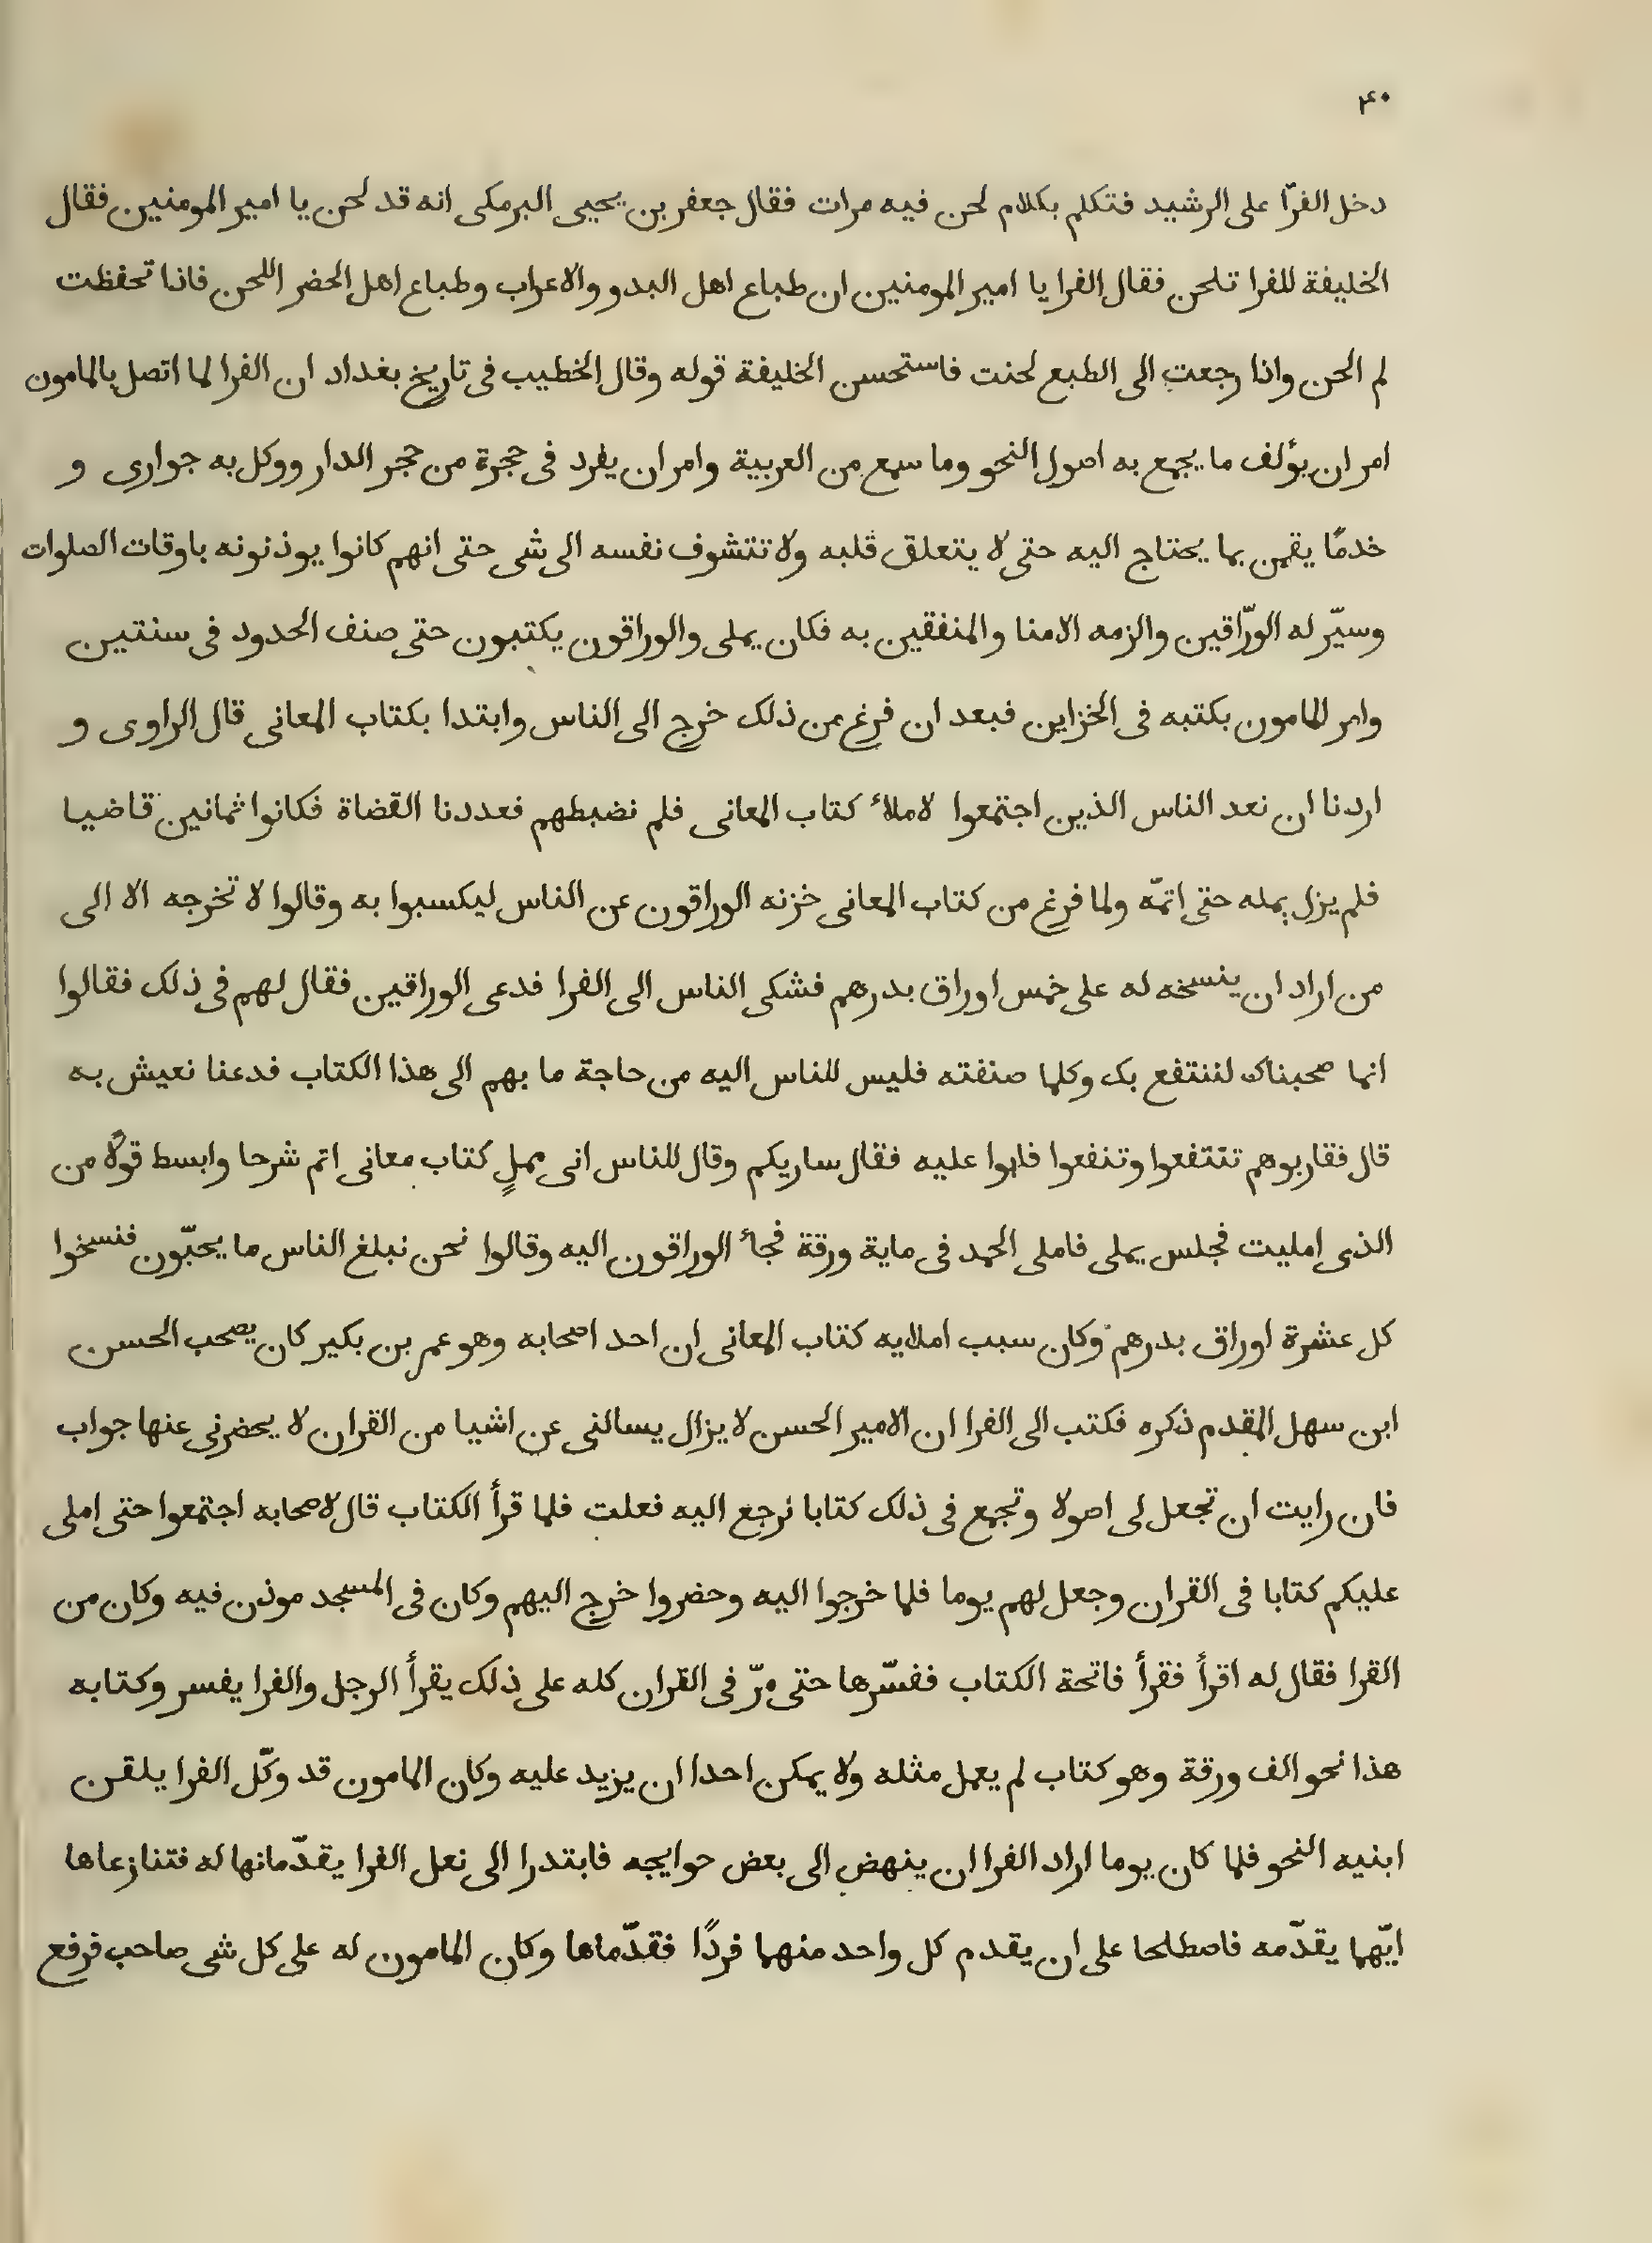 ۴۰
دخل الفرّا على الرشيد فتكلم بكلام لحن فيه مرات فقال جعفر بن يحيى البرمكى انه قد لحن يا امير المومنين فقال
الخليفة للفرا تلحن فقال الفرا يا امير المومنين ان طباع اهل البدو والاعراب وطباع اهل الحضر اللحن فاذا تحفظت
لم الحن واذا رجعت الى الطبع لحنت فاستحسن الخليفة قوله وقال الخطيب فى تاريخ بغداد ان الفرا لما اتصل بالمامون
امر ان يؤلف ما يجمع به اصول النحو وما سمع من العربية وامر ان يفرد فى حجرة من حجر الدار ووكل به جوارى و
خدمًا يقمن بما يحتاج اليه حتى لا يتعلق قلبه ولا تتشوف نفسه الى شى حتى انهم كانوا يوذنونه باوقات الصلوات
وسيّر له الورّاقين والزمه الامنا والمنفقين به فكان يملى والوراقون يكتبون حتى صنف الحدود فى سنتين
وامر المامون بكتبه فى الخزاين فبعد ان فرغ من ذلك خرج الى الناس وابتدا بكتاب المعانى قال الراوى و
اردنا ان نعد الناس الذين اجتمعوا لاملاء كتاب المعانى فلم نضبطهم فعددنا القضاة فكانوا ثمانين قاضيا
فلم يزل يمله حتى اتمّه ولما فرغ من كتاب المعانى خزنه الوراقون عن الناس ليكسبوا به وقالوا لا تخرجه الا الى
من اراد ان ينسخه له على خمس اوراق بدرهم فشكى الناس الى الفرا فدعى الوراقين فقال لهم فى ذلك فقالوا
انما صحبناك لننتفع بك وكلما صنفته فليس للناس اليه من حاجة ما بهم الى هذا الكتاب فدعنا نعيش به
قال فقاربوهم تنتفعوا وتنفعوا فابوا عليه فقال ساريكم وقال للناس انى ممل كتاب معانى اتم شرحا وابسط قولًا من
الذى امليت فجلس يملى فاملى الحمد فى ماية ورقة فجاء الوراقون اليه وقالوا نحن نبلغ الناس ما يحبّون فنسخوا
كل عشرة اوراق بدرهم وكان سبب املايه كتاب المعانى ان احد اصحابه وهو عمر بن بكير كان يصحب الحسن
ابن سهل المقدم ذكره فكتب الى الفرا ان الامير الحسن لا يزال يسالنى عن اشيا من القران لا يحضرنى عنها جواب
فان رايت ان تجعل لى اصولا وتجمع فى ذلك كتابا نرجع اليه فعلت فلما قرأ الكتاب قال لاصحابه اجتمعوا حتى املى
عليكم كتابا فى القران وجعل لهم يوما فلما خرجوا اليه وحضروا خرج اليهم وكان فى المسجد موذن فيه وكان من
القرا فقال له اقرأ فقرأ فاتحة الكتاب ففسّرها حتى مرّ فى القران كله على ذلك يقرأ الرجل والفرا يفسر وكتابه
هذا نحو الف ورقة وهو كتاب لم يعمل مثله ولا يمكن احدا ان يزيد عليه وكان المامون قد وكّل الفرا يلقن
ابنيه النحو فلما كان يوما اراد الفرا ان ينهض الى بعض حوايجه فابتدرا الى نعل الفرا يقدّمانها له فتنازعاها
ايّهما يقدّمه فاصطلحا على ان يقدم كل واحد منهما فردًا فقدّماها وكان المامون له على كل شى صاحب فرفع